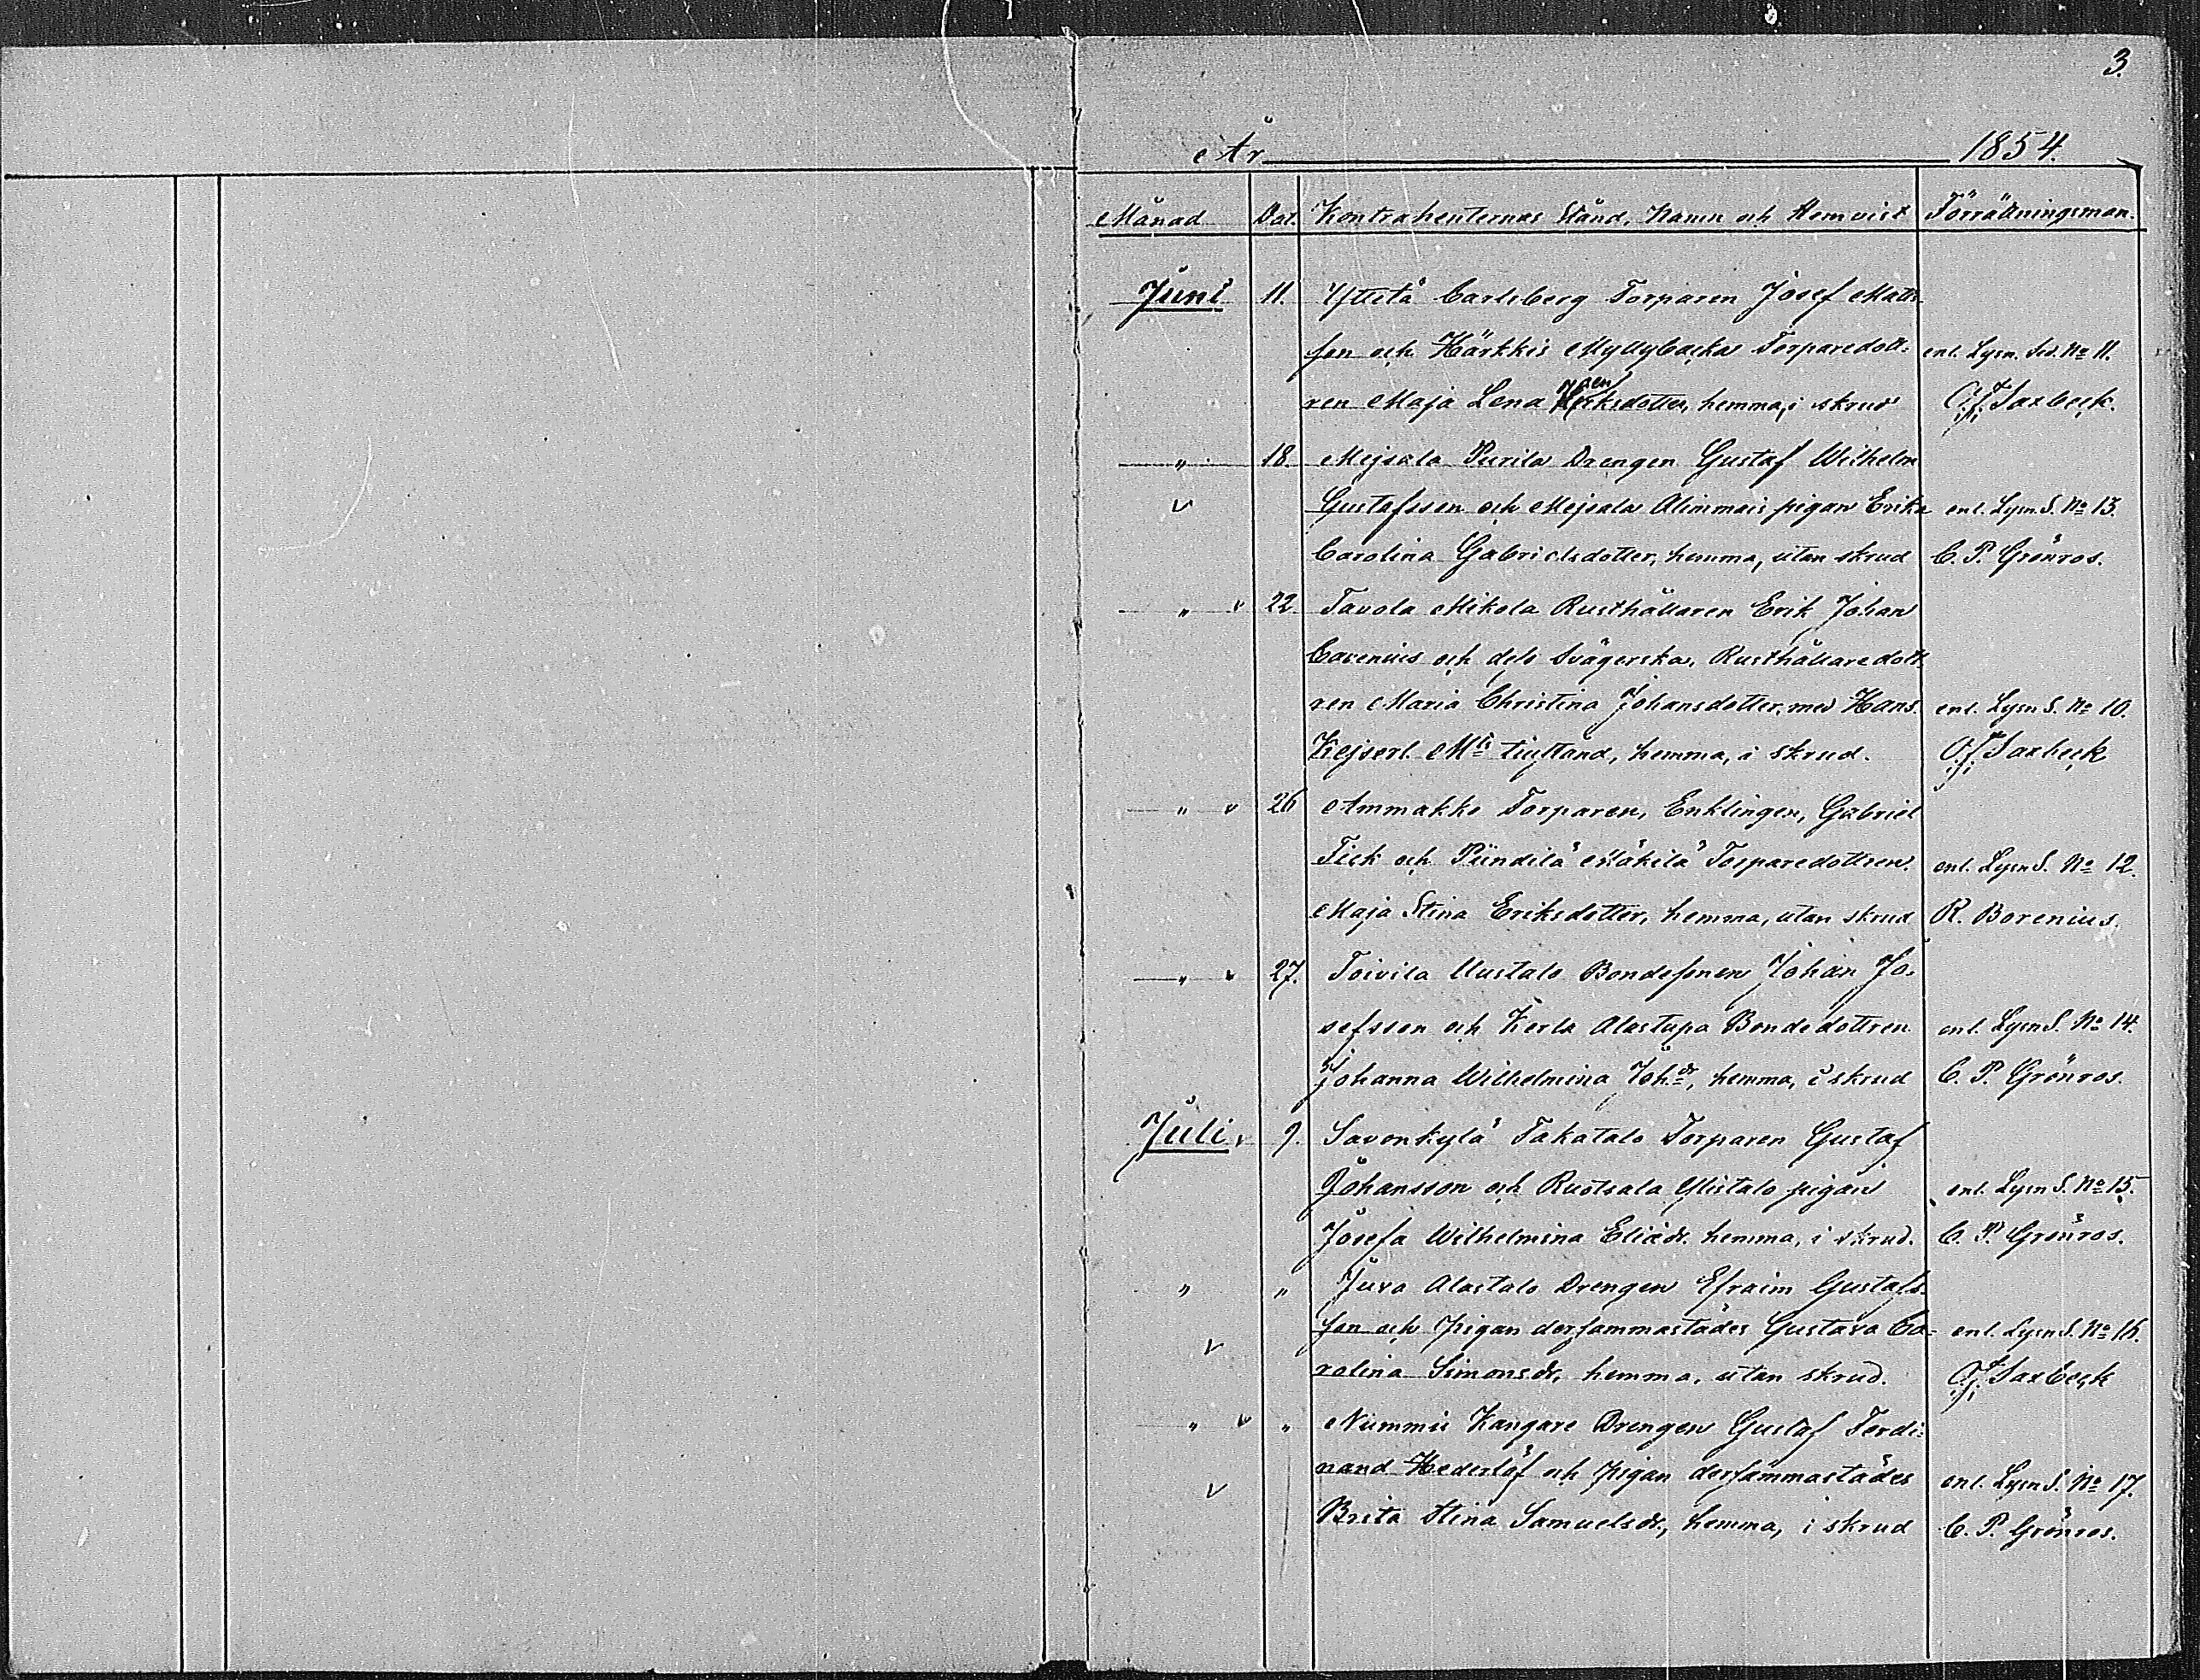 3.
År 1854.
Månad Dat. Kontrahenternas Stånd, Namn och Hemvist Förrättningsman.
Juni 11. Yttilä Carlsberg Torparen Josef Matts-
son och Härkkis Myllybacka Torparedott- enl. Lysn. Sed. No 11.
ren Maja Lena dotter, hemma, i skrud O. f. Saxbeck.
" 18. Mejsala Purila Drengen Gustaf Wilhelm
v Gustafsson och Mejsala Alimmais pigan Erika enl. Lysn. S. No 13.
Carolina Gabrielsdotter, hemma, utan skrud C. P. Grönros.
" v 22 Tavola Mikola Rusthållaren Erik Johan
Carenius och dess Svägerska, Rusthållaredott-
ren Maria Christina Johansdotter, med Hans enl. Lysn S. No 10.
Kejserl. Mts tillstånd, hemma, i skrud. O. f. Saxbeck
" v 26 Ammakko Torparen, Enklingen, Gabriel
Fick och Pundila Mäkilä Torparedottren enl. Lysn S. No 12.
Maja Stina Eriksdotter, hemma, utan skrud R. Borenius.
" v 27. Toivila Uustalo Bondesonen Johan Jo-
sefsson och Kerla Alastupa Bondedottren enl. Lysn S. No 14.
Johanna Wilhelmina Johdr, hemma, i skrud C. P. Grönros.
Juli v 9. Savonkylä Takatalo Torparen Gustaf
Johansson och Ruotsala Ylistalo pigan enl. Lysn S. No 15.
Josefa Wilhelmina Eliædr. hemma, i skrud. C. P. Grönros.
" " Juva Alastalo Drengen Efraim Gustafs-
v son och pigan dersammastädes Gustava Ca- enl. Lysn S. No 16.
rolina Simonsdr, hemma, utan skrud. O. f. Saxbeck
" v " Nummis Kangare Drengen Gustaf Ferdi-
v nand Hederlöf och pigan dersammastädes enl. Lysn S. No 17.
Brita Stina Samuelsdr, hemma, i skrud C. P. Grönros.